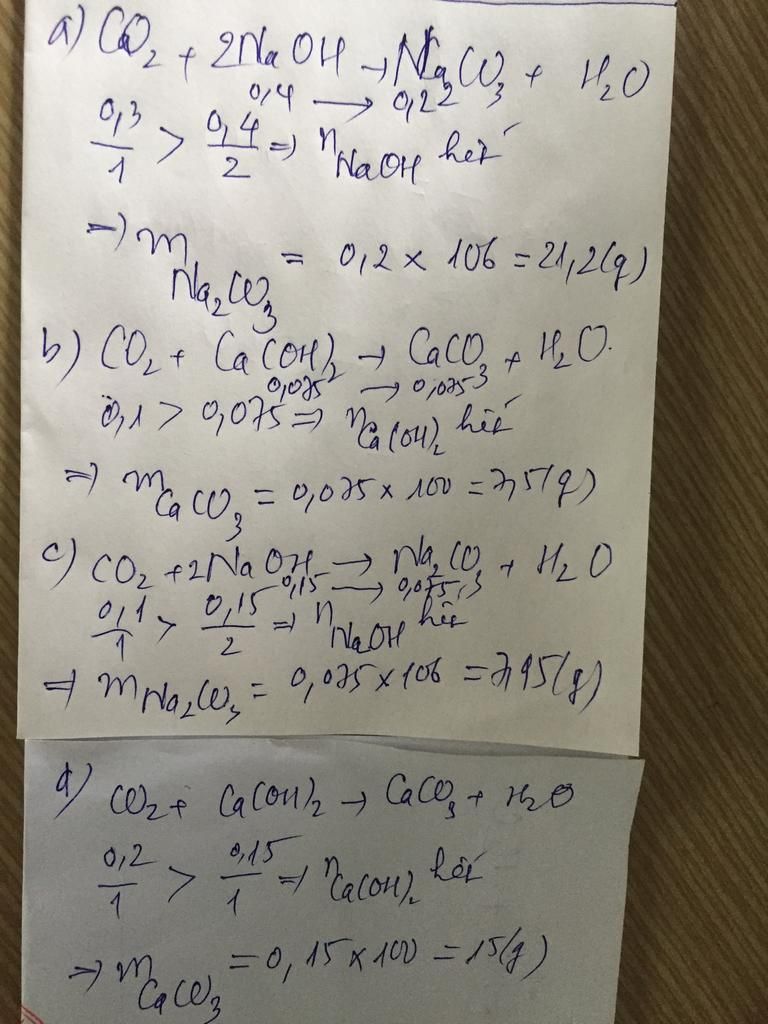 a) CO2 + 2NaOH → Na2CO3 + H2O
0,4 → 0,2
0,3/1 > 0,4/2 => nNaOH hết
=> mNa2CO3 = 0,2 x 106 = 21,2(g)
b) CO2 + Ca(OH)2 → CaCO3 + H2O.
0,075 → 0,075
0,1 > 0,075 => nCa(OH)2 hết
=> mCaCO3 = 0,075 x 100 = 7,5(g)
c) CO2 + 2NaOH → Na2CO3 + H2O
0,15 → 0,075
0,1/1 > 0,15/2 => nNaOH hết
=> mNa2CO3 = 0,075 x 106 = 7,95(g)
d) CO2 + Ca(OH)2 → CaCO3 + H2O
0,2/1 > 0,15/1 => nCa(OH)2 hết
=> mCaCO3 = 0,15 x 100 = 15(g)